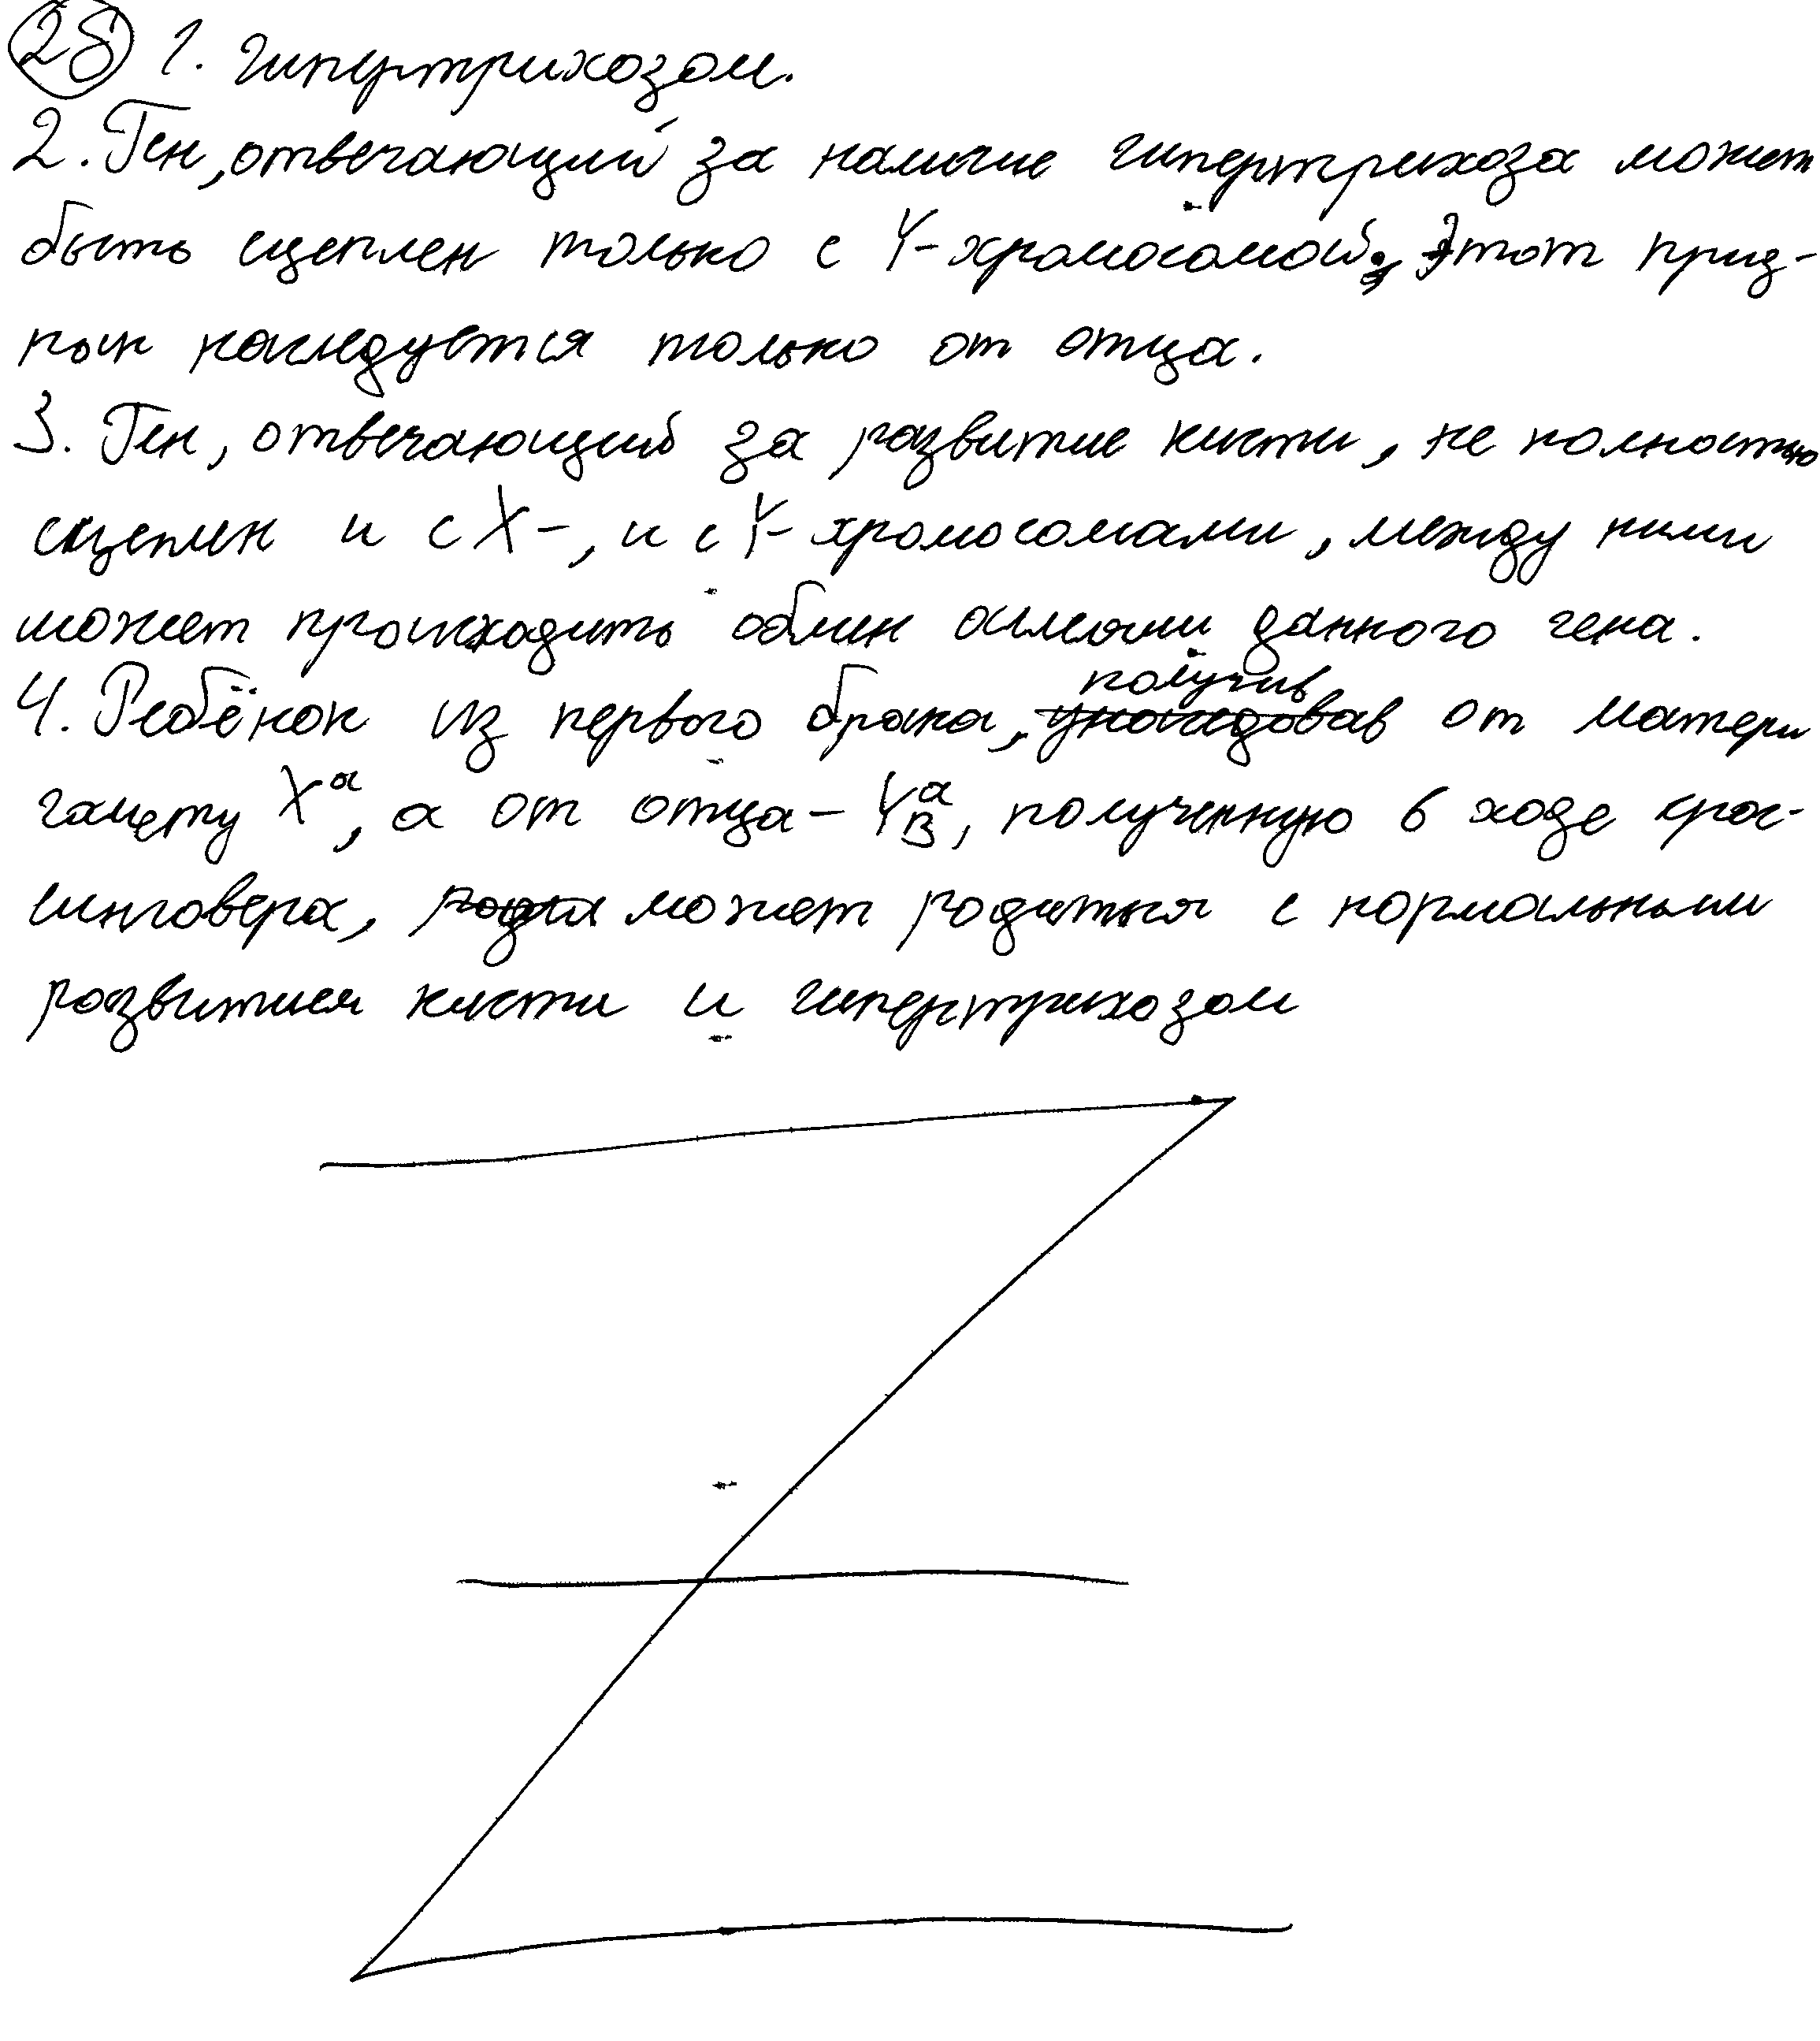 28 1. гипертрихозом.
2. Ген, отвечающий за наличие гипертрихоза может
быть сцеплен только с Y-хромосомой, Этот приз-
нак наследуется только от отца.
3. Ген, отвечающий за развитие кисти, не полностью
сцеплен и с X-, и с Y-хромосомами, между ними
может происходить обмен аллелями данного гена.
получив
4. Ребёнок из первого брака, унаследовав от матери
гамету Xᵃ, а от отца - Yᵃ_B, полученную в ходе крос-
синговера, может родиться с нормальными
развитием кисти и гипертрихозом